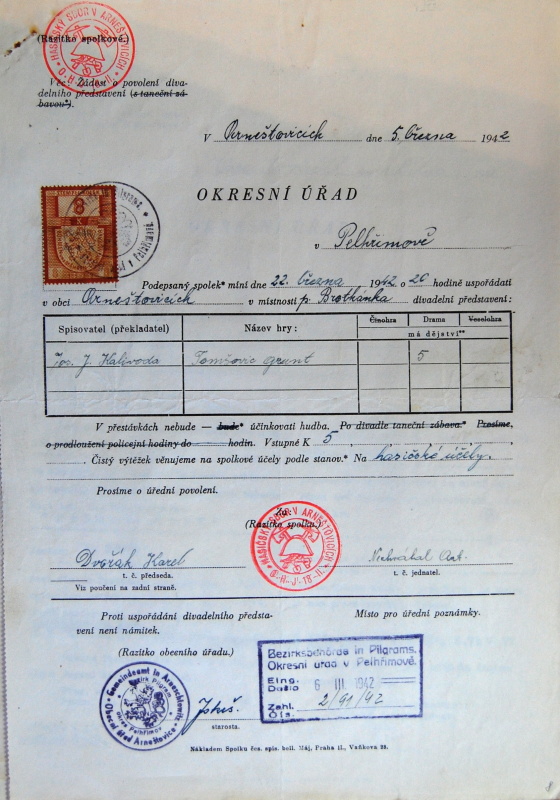 HASIČSKÝ SBOR V ARNEŠTOVICÍCH
(Razítko spolkové.)
Věc: Žádost o povolení diva-
delního představení (s taneční zá-
bavou*).
V Arneštovicích dne 5. března 1942
OKRESNÍ ÚŘAD
v Pelhřimově
8
K
Podepsaný spolek* míní dne 22. března 1942 o 20 hodině uspořádati
v obci Arneštovicích v místnosti p. Brothánka divadelní představení:
Spisovatel (překladatel) Název hry: Činohra Drama Veselohra
má dějství**
Jos. J. Kalivoda Tomšovic grunt 5
V přestávkách nebude — bude* účinkovati hudba. Po divadle taneční zábava.* Prosíme,
o prodloužení policejní hodiny do hodin. Vstupné K 5,
Čistý výtěžek věnujeme na spolkové účely podle stanov.* Na hasičské účely.
Prosíme o úřední povolení.
Za:
(Razítko spolku.)
HASIČSKÝ SBOR V ARNEŠTOVICÍCH
Dvořák Karel Nechváhal Ant.
t. č. předseda. t. č. jednatel.
Viz poučení na zadní straně.
Proti uspořádání divadelního představe-
ní není námitek.
Místo pro úřední poznámky.
(Razítko obecního úřadu.)
Gemeindeamt in Arneschtowitz
Bezirk Pilgram
okres Pelhřimov
Obecní úřad Arneštovice
starosta.
Bezirksbehörde in Pilgrams.
Okresní úřad v Pelhřimově.
Eing.
Došlo 6 III 1942
Zahl.
Čís. 2/91/42
Nákladem Spolku čes. spis. bell. Máj, Praha II., Vaňkova 28.